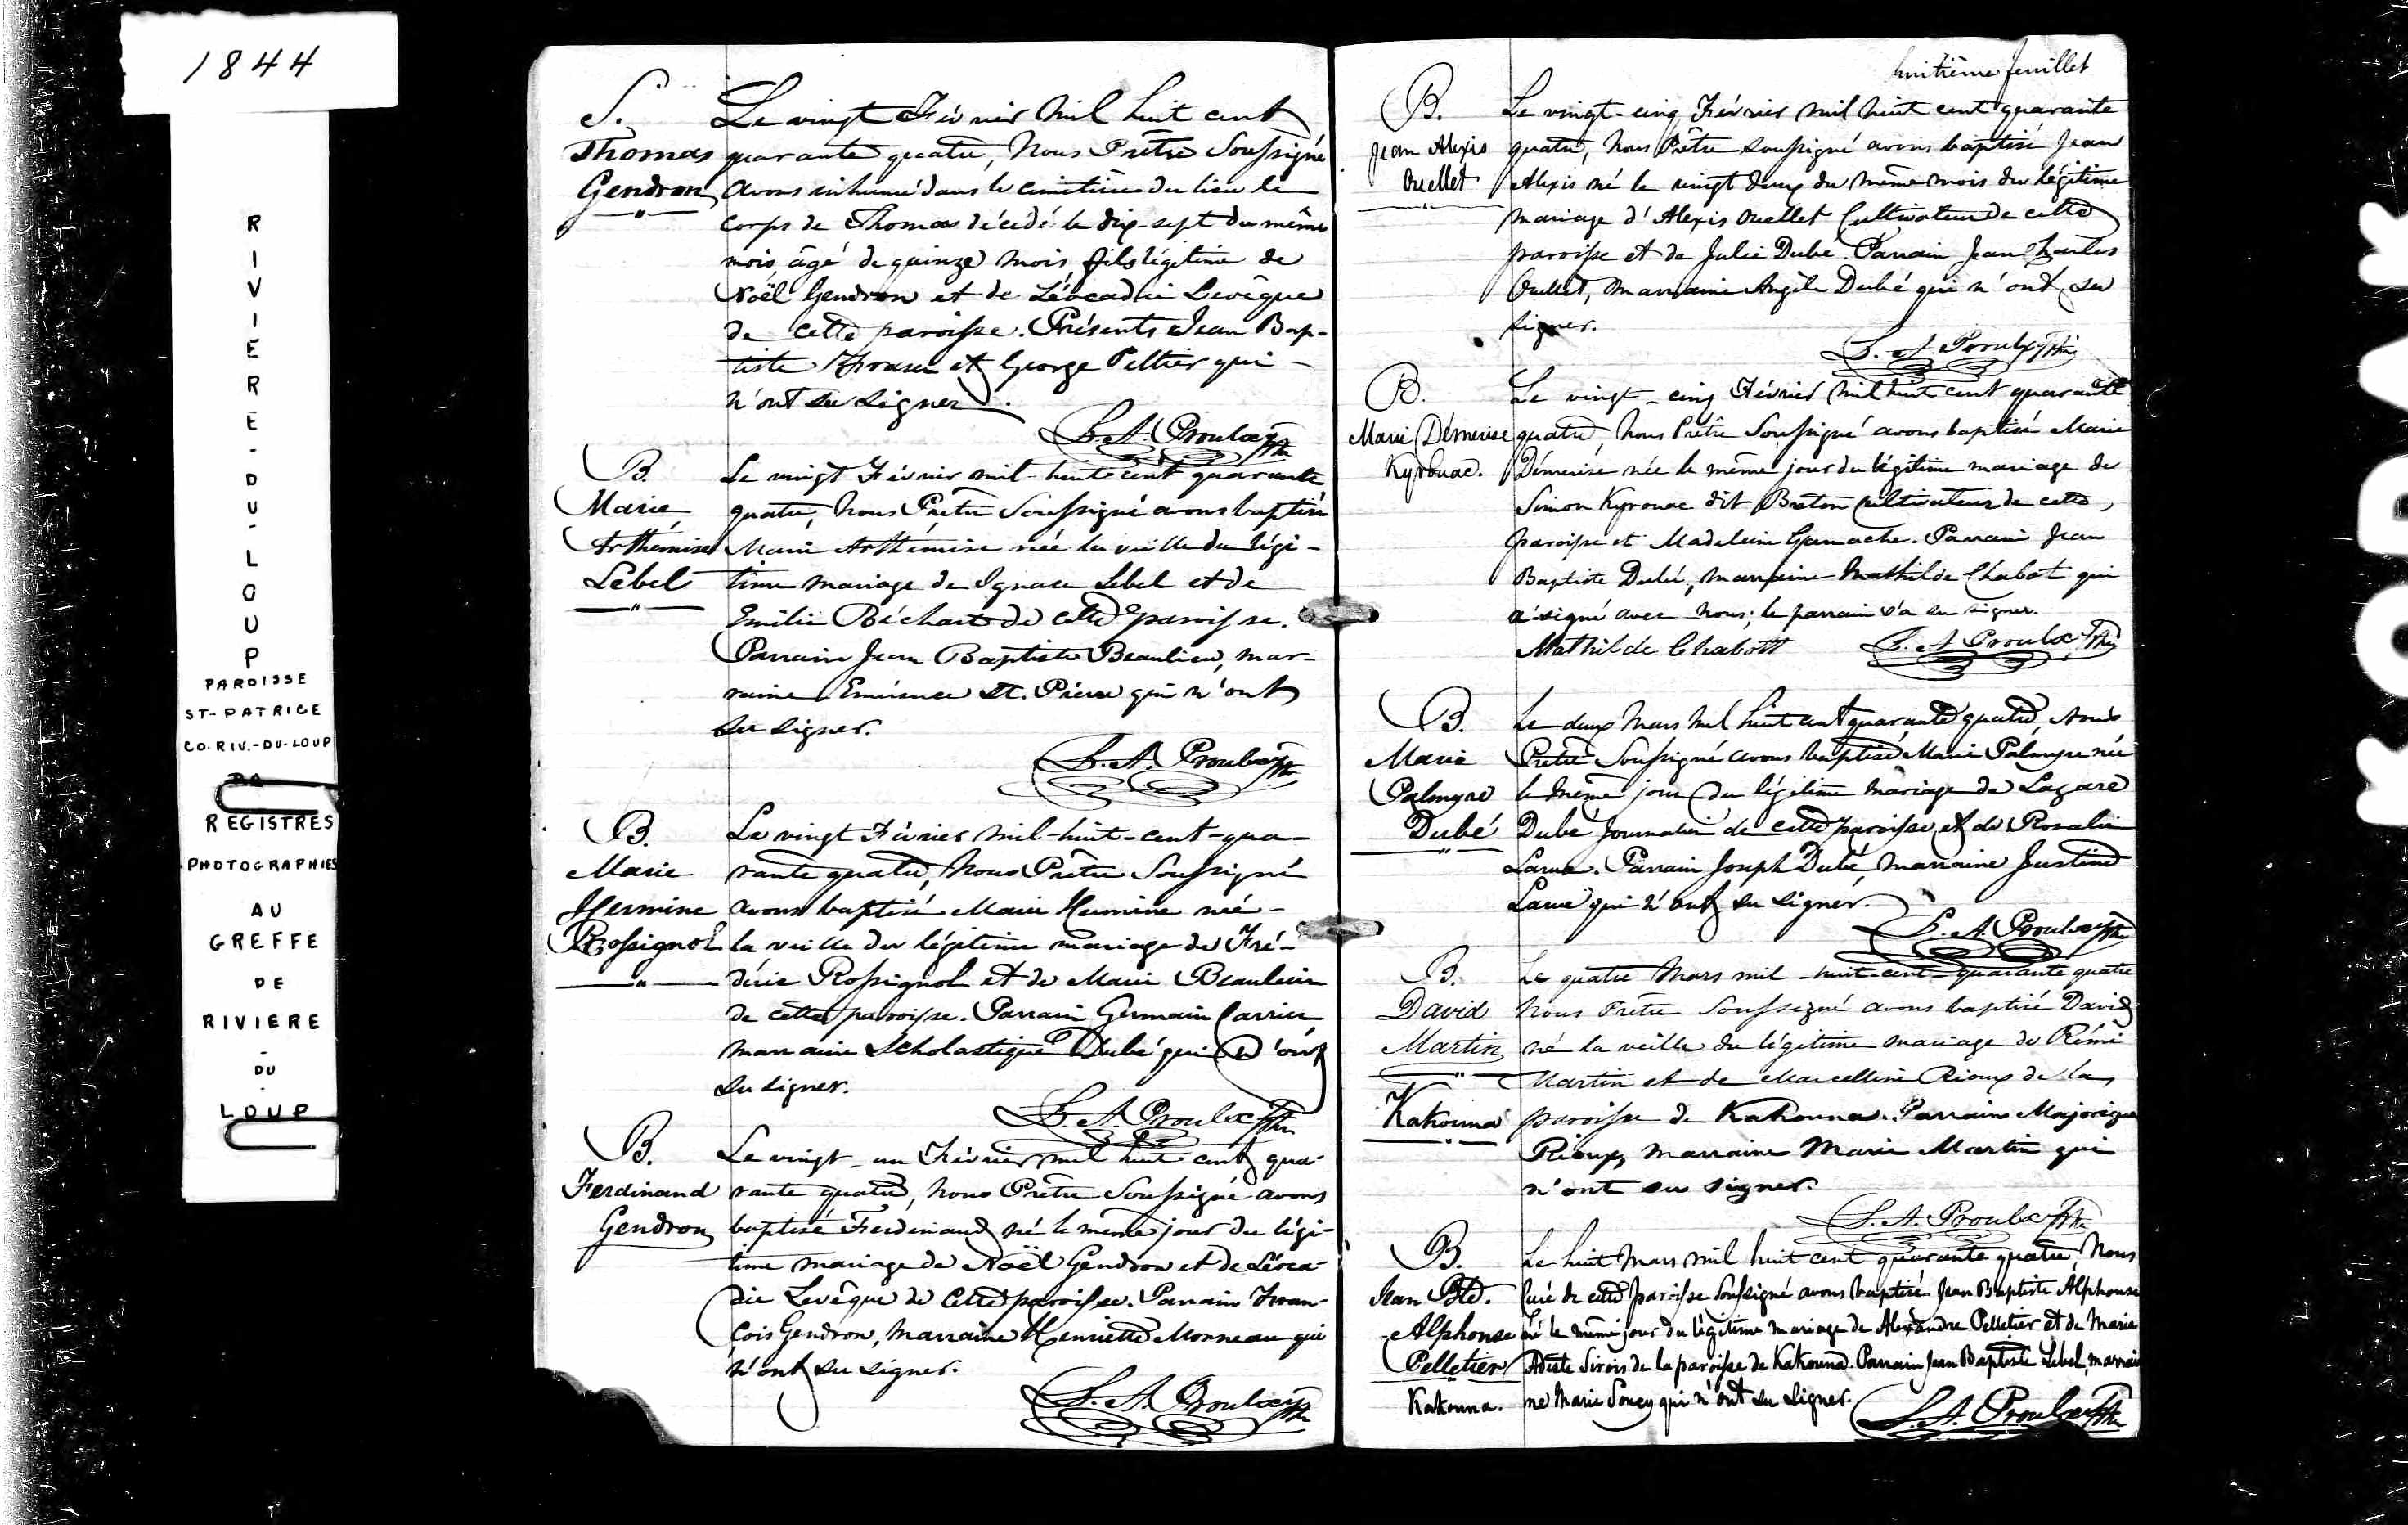 1844
RIVIERE-DU-LOUP
PAROISSE
ST-PATRICE
CO. RIV.-DU-LOUP
REGISTRES
PHOTOGRAPHIES
AU
GREFFE
DE
RIVIERE
-
DU
-
LOUP
S.
Thomas
Gendron
Le vingt Février mil huit cent
quarante quatre, Nous Prêtre Soussigné
avons inhumé dans le cimetière du lieu le
corps de Thomas décédé le dix-sept du même
mois, âgé de quinze mois, fils légitime de
Noël Gendron et de Léocadie Levêque
de cette paroisse. Présents Jean Bap-
tiste et George Peltier qui
n'ont su signer.
L. A. Proulx Ptre
B.
Marie
Arthémise
Lebel
Le vingt Février mil-huit cent quarante
quatre, Nous Prêtre Soussigné avons baptisé
Marie Arthémise née la veille du légi-
time mariage de Ignace Lebel et de
Emilie Béchard de cette paroisse.
Parrain Jean Baptiste Beaulieu, mar-
raine Emérence St. Pierre qui n'ont
su signer.
L. A. Proulx Ptre
B.
Marie
Hermine
Rossignol
Le vingt Février mil-huit-cent-qua-
rante quatre, Nous Prêtre Soussigné
avons baptisé Marie Hermine née
la veille du légitime mariage de Fré-
déric Rossignol et de Marie Beaulieu
de cette paroisse. Parrain Germain Carrier
marraine Scholastique Dubé qui n'ont
su signer.
L. A. Proulx Ptre
B.
Ferdinand
Gendron
Le vingt-un Février mil huit cent qua-
rante quatre, Nous Prêtre Soussigné avons
baptisé Ferdinand né le même jour du légi-
time mariage de Noël Gendron et de Léoca-
die Levêque de cette paroisse. Parrain Fran-
çois Gendron, Marraine Henriette Morneau qui
n'ont su signer.
L. A. Proulx Ptre
huitième feuillet
B.
Jean Alexis
Ouellet
Le vingt-cinq Février mil huit cent quarante
quatre, Nous Prêtre soussigné avons baptisé Jean
Alexis né le vingt deux du même mois du légitime
mariage d'Alexis Ouellet Cultivateur de cette
paroisse et de Julie Dubé. Parrain Jean Charles
Ouellet, marraine Angèle Dubé qui n'ont su
signer.
L. A. Proulx Ptre
B.
Marie Démerise
Kyrouac.
Le vingt-cinq Février mil huit cent quarante
quatre, Nous Prêtre Soussigné avons baptisé Marie
Démerise née le même jour du légitime mariage de
Simon Kyrouac dit Breton cultivateur de cette
paroisse et Madeleine Gamache. Parrain Jean
Baptiste Dubé, marraine Mathilde Chabot qui
a signé avec nous; le parrain n'a su signer.
Mathilde Chabott L. A. Proulx, Ptre
B.
Marie
Palmyre
Dubé
Le deux Mars mil huit cent quarante quatre, Nous
Prêtre Soussigné avons baptisé Marie Palmyre née
le même jour du légitime mariage de Lazare
Dubé Journalier de cette paroisse et de Rosalie
Laruë. Parrain Joseph Dubé, marraine Justine
Laruë qui n'ont su signer.
L. A. Proulx Ptre
B.
David
Martin
Kakouna
Le quatre Mars mil-huit-cent-quarante quatre
Nous Prêtre Soussigné avons baptisé David
né la veille du légitime mariage de Rémi
Martin et de Marcelline Rioux de la
paroisse de Kakouna. Parrain Majorique
Rioux, marraine Marie Martin qui
n'ont su signer.
L. A. Proulx Ptre
B.
Jean Bte.
Alphonse
Pelletier
Kakouna.
Le huit Mars mil huit cent quarante quatre, Nous
Curé de cette paroisse Soussigné avons baptisé Jean Baptiste Alphonse
né le même jour du légitime mariage de Alexandre Pelletier et de Marie
Sirois de la paroisse de Kakouna. Parrain Jean Baptiste Lebel, marrai-
ne Marie Soucy qui n'ont su signer.
L. A. Proulx Ptre
KODAK